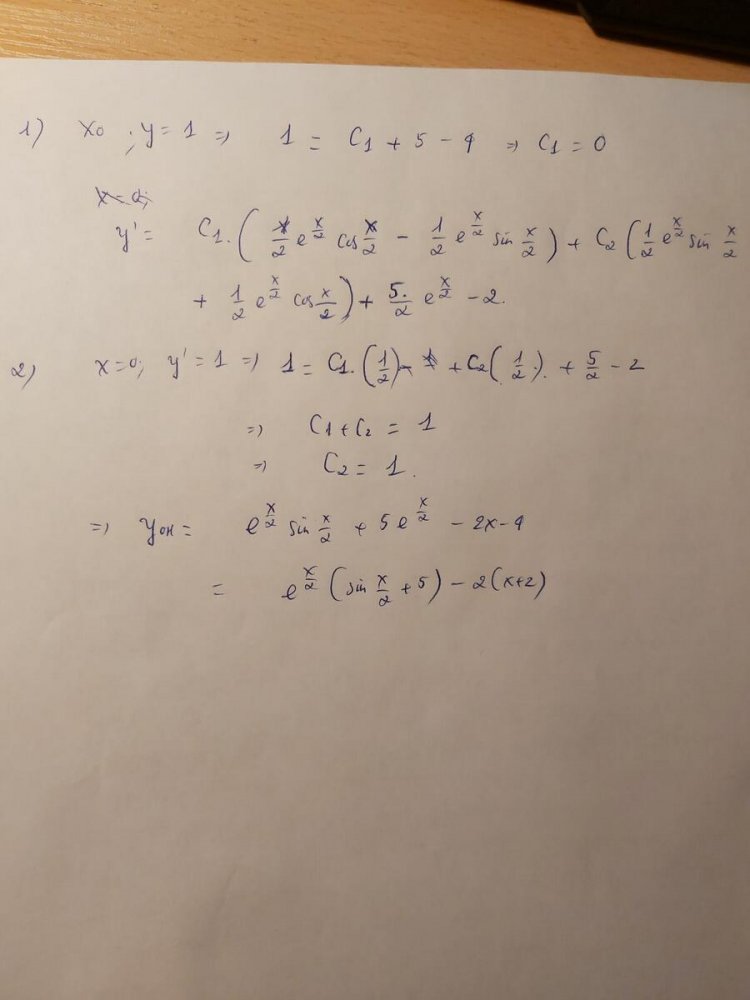 1) x0 ; y = 1 ⇒ 1 = C1 + 5 - 4 ⇒ C1 = 0
x=0;
y' = C1·(1/2 e^(x/2) cos x/2 - 1/2 e^(x/2) sin x/2) + C2 (1/2 e^(x/2) sin x/2
+ 1/2 e^(x/2) cos x/2) + 5·/2 e^(x/2) - 2.
2) x=0; y' = 1 ⇒ 1 = C1·(1/2) + C2(1/2·). + 5/2 - 2
⇒ C1 + C2 = 1
⇒ C2 = 1.
⇒ yон = e^(x/2) sin x/2 + 5 e^(x/2) - 2x - 4
= e^(x/2) (sin x/2 + 5) - 2(x+2)